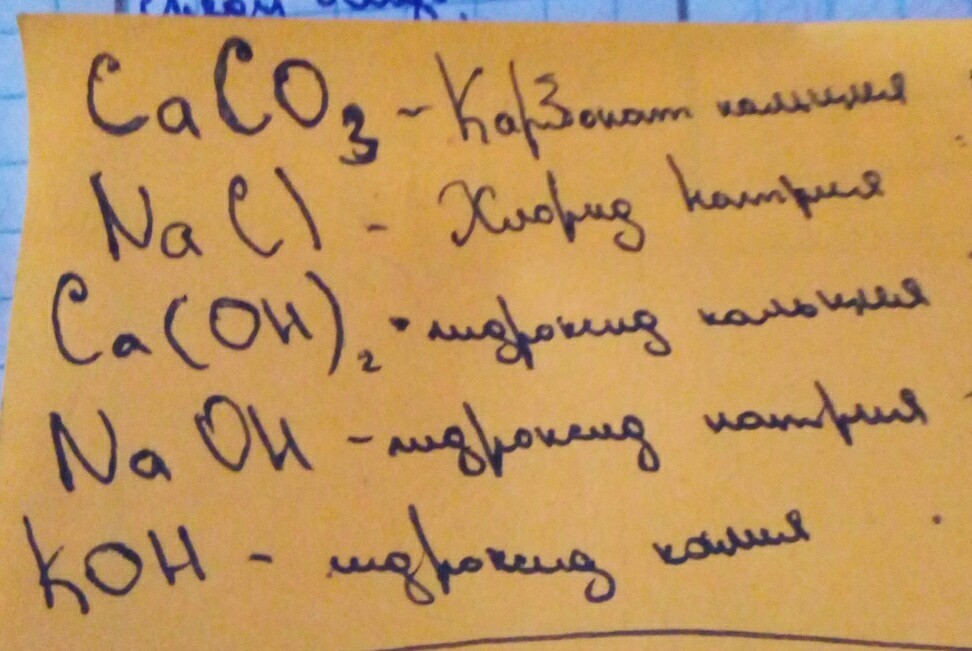 CaCO₃ - Карбонат кальция
NaCl - Хлорид натрия
Ca(OH)₂ - гидроксид кальция
NaOH - гидроксид натрия
KOH - гидроксид калия